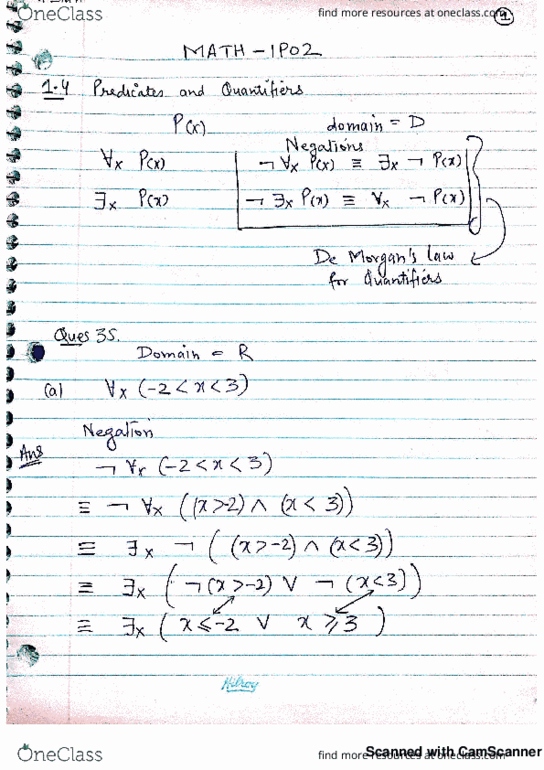 OneClass find more resources at oneclass.com
1
MATH-1P02
1.4 Predicates and Quantifiers
P(x) domain = D
Negations
∀x P(x) ¬ ∀x P(x) ≡ ∃x ¬ P(x)
∃x P(x) ¬ ∃x P(x) ≡ ∀x ¬ P(x)
De Morgan's law
for Quantifiers
Ques 35.
Domain = R
(a) ∀x (-2 < x < 3)
Negation
Ans
¬ ∀x (-2 < x < 3)
≡ ¬ ∀x ((x > -2) ∧ (x < 3))
≡ ∃x ¬ ( (x > -2) ∧ (x < 3))
≡ ∃x ( ¬ (x > -2) ∨ ¬ (x < 3) )
≡ ∃x ( x ⩽ -2 ∨ x ⩾ 3 )
Hilroy
OneClass find more resources at oneclass.com
Scanned with CamScanner